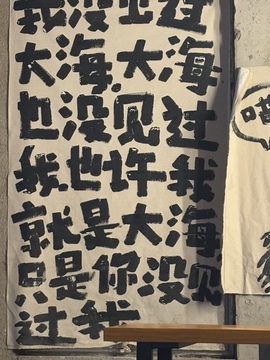 我没见过
大海.大海
也没见过
我.也许我
就是大海
只是你没见
过我
喵